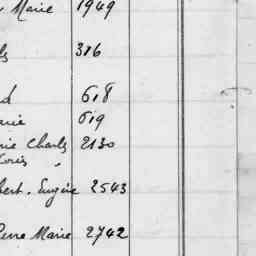 Marie 1949
316
618
619
Charles 2130
Louis
Eugène 2543
Pierre Marie 2742